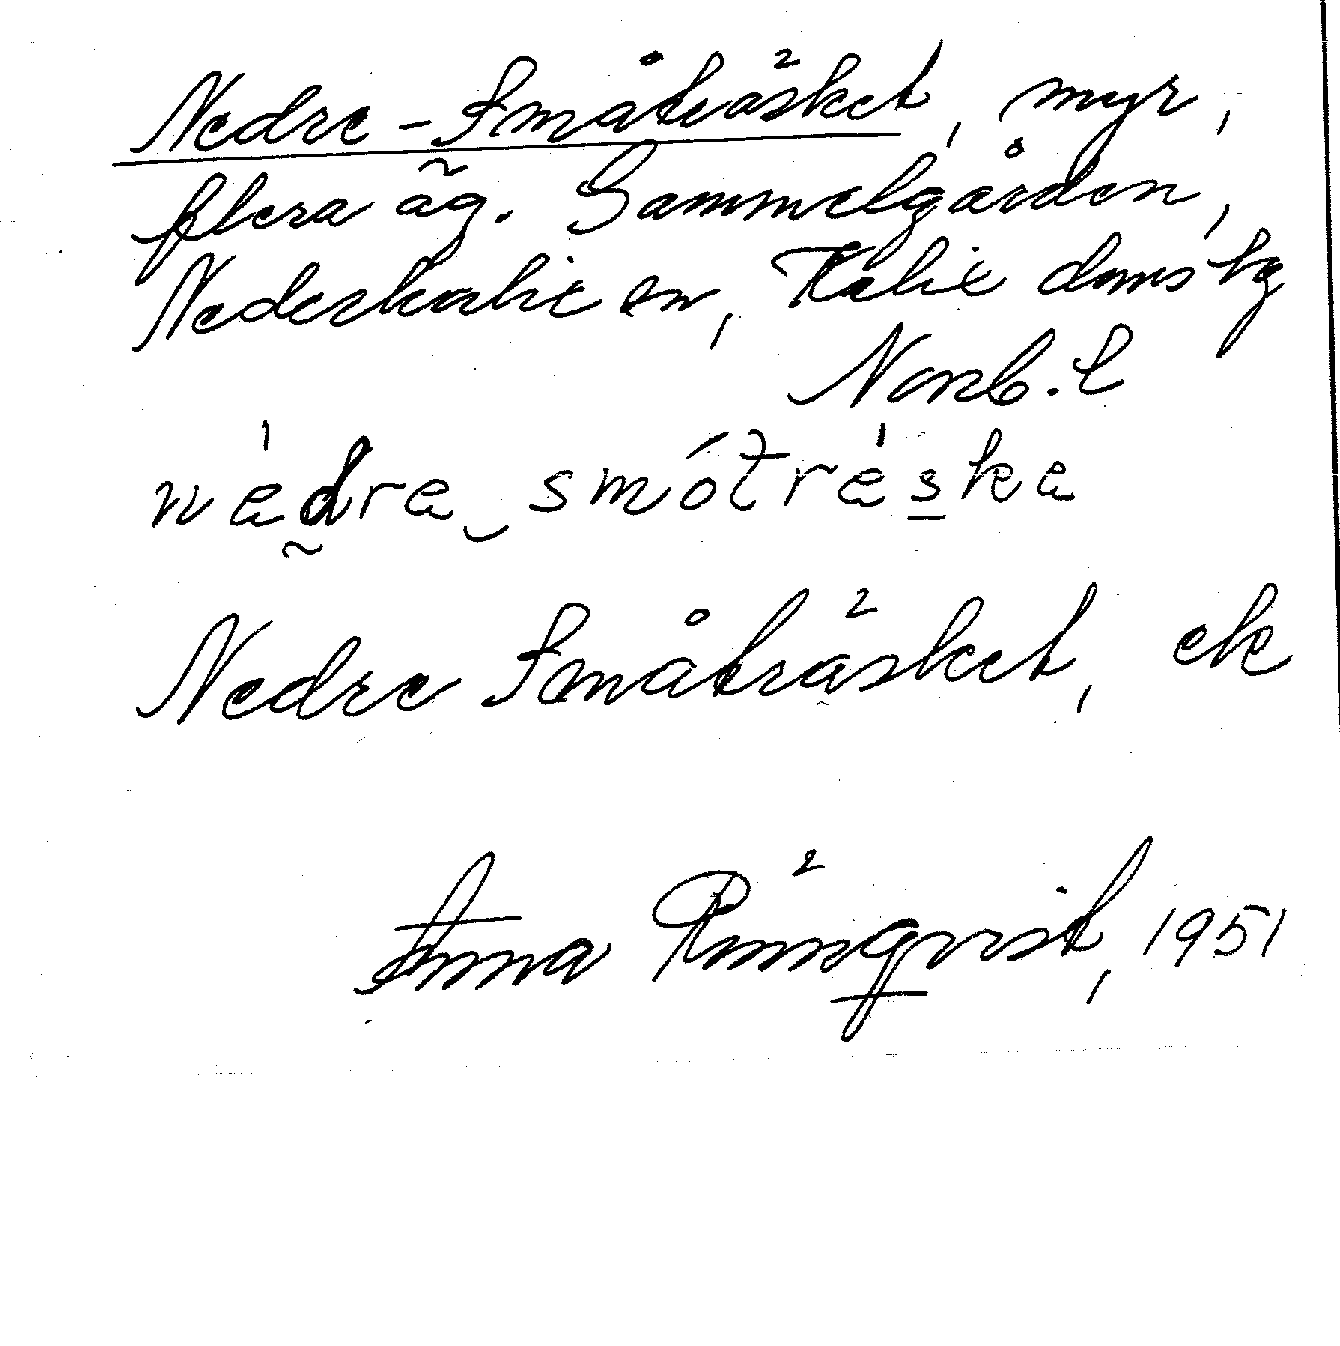 Nedre-Småträsket, myr,
flera äg. Gammelgården,
Nederkalix sn, Kalix domsbg
Norrb. l
nèdre smótrèske
Nedre Småträsket, ek
Anna Rönnqvist, 1951